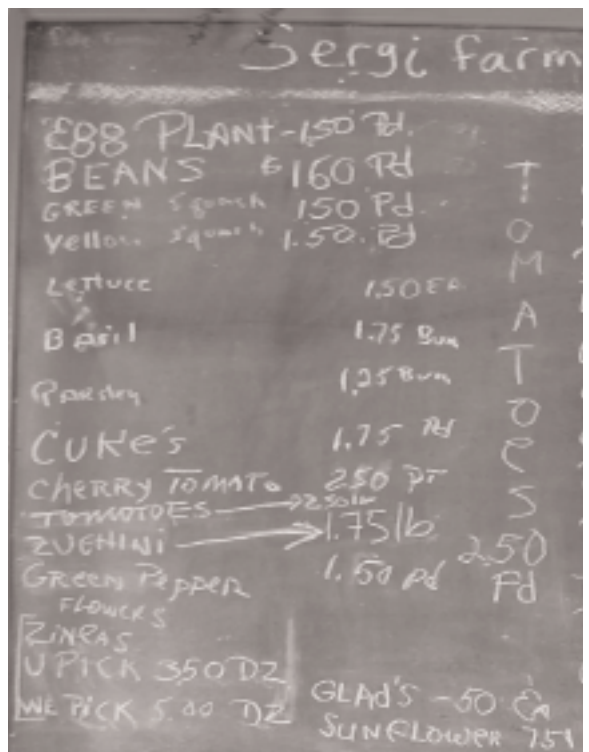 Sergi farm
EGG PLANT - 1.50 Pd.
BEANS $160 Pd
GREEN Squash 150 Pd.
Yellow Squash 1.50. Pd
LETTUCE 1.50 EA
Basil 1.75 Bun
Parsley 1.25 Bun
CUKE's 1.75 Pd
CHERRY TOMATO 2.50 PT
TOMOTOES → 2.50 lb
ZUEHINI → 1.75 lb
Green Pepper 1.50 pd
FLOWERS
ZINEAS
U PICK 3.50 DZ
WE PICK 5.00 DZ
GLAD'S - 50 Ea
SUNFLOWER 75¢
TOMATOES
2.50
Pd